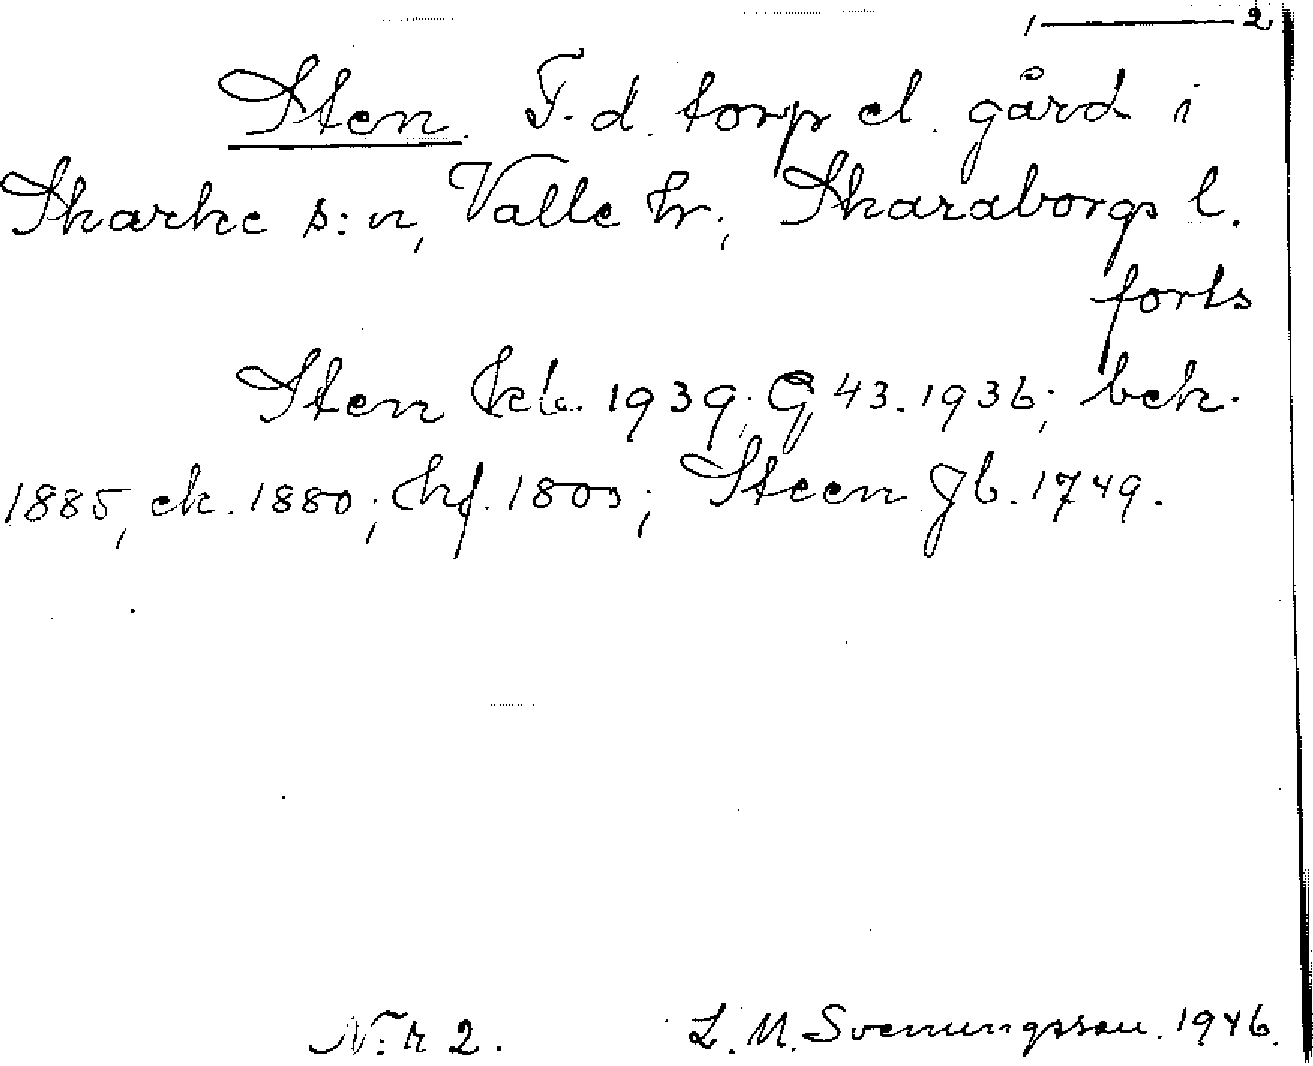 1 — 2
Sten. F. d. torp el. gård i
Skarke s:n, Valle hr, Skaraborgs l.
forts
Sten kb. 1939; G 43. 1936; bek.
1885, ek. 1880; hf. 1803; Steen Jb. 1749.
N:r 2. L. M. Svenungsson. 1946.